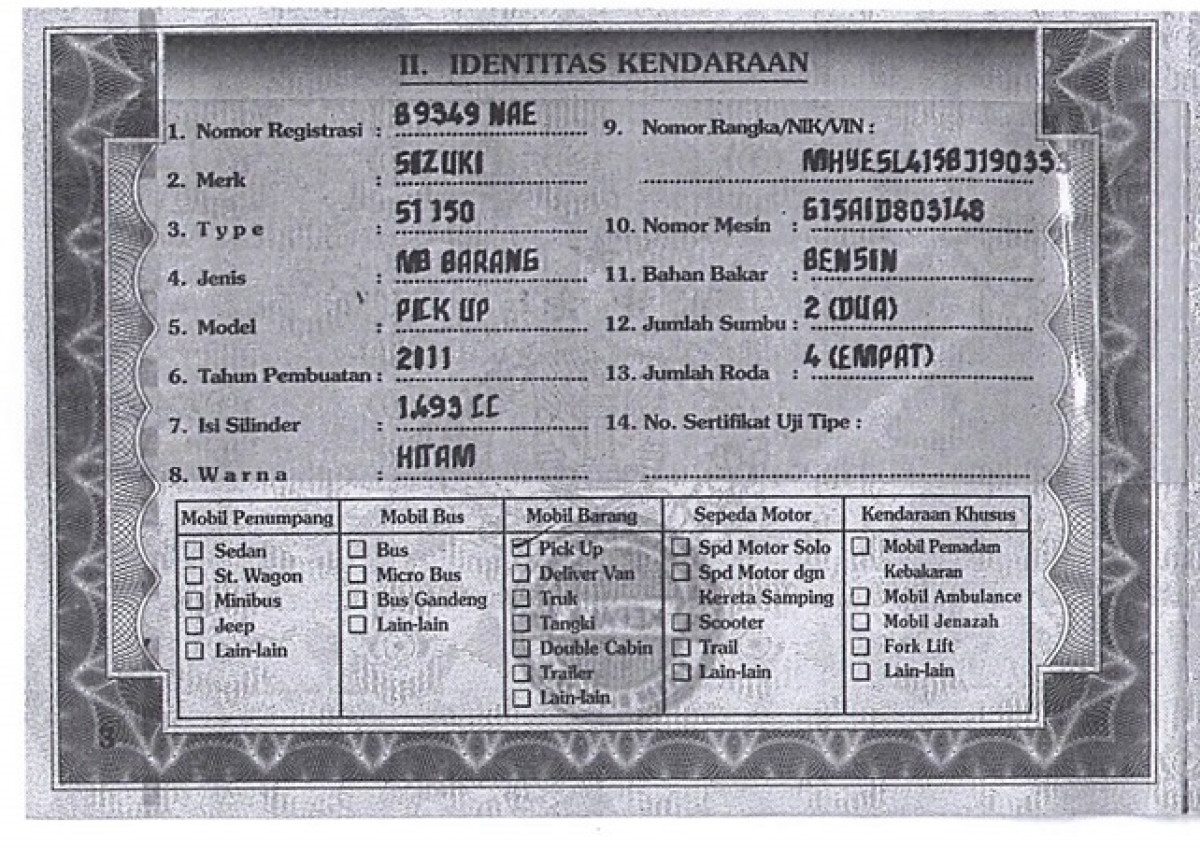 II. IDENTITAS KENDARAAN
1. Nomor Registrasi : B 9349 NAE
2. Merk : SUZUKI
3. Type : ST 150
4. Jenis : MB BARANG
5. Model : PICK UP
6. Tahun Pembuatan : 2011
7. Isi Silinder : 1.493 CC
8. Warna : HITAM
9. Nomor Rangka/NIK/VIN :
MHYESL415BJ190333
10. Nomor Mesin : G15AID803148
11. Bahan Bakar : BENSIN
12. Jumlah Sumbu : 2 (DUA)
13. Jumlah Roda : 4 (EMPAT)
14. No. Sertifikat Uji Tipe :
Mobil Penumpang
Sedan
St. Wagon
Minibus
Jeep
Lain-lain
Mobil Bus
Bus
Micro Bus
Bus Gandeng
Lain-lain
Mobil Barang
Pick Up
Deliver Van
Truk
Tangki
Double Cabin
Trailer
Lain-lain
Sepeda Motor
Spd Motor Solo
Spd Motor dgn
Kereta Samping
Scooter
Trail
Lain-lain
Kendaraan Khusus
Mobil Pemadam
Kebakaran
Mobil Ambulance
Mobil Jenazah
Fork Lift
Lain-lain
3